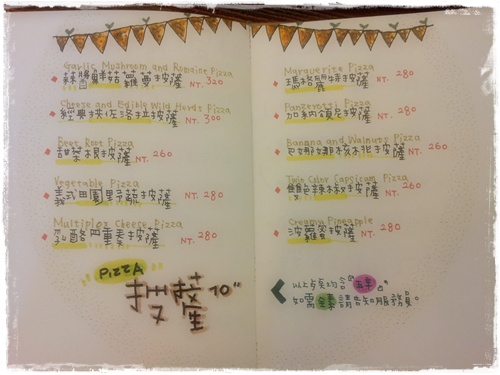 Garlic Mushroom and Romaine Pizza
蒜醬蘑菇蘿蔓披薩 NT. 320
Cheese and Edible Wild Herbs Pizza
經典挾佐洛拉披薩 NT. 300
Beet Root Pizza
甜菜根披薩 NT. 260
Vegetable Pizza
義式田園野蔬披薩 NT. 280
Multiplex Cheese Pizza
乳酪四重奏披薩 NT. 280
PIZZA
披薩 10"
Marguerite Pizza
瑪格麗特披薩 NT. 280
Panzerotti Pizza
加納頌尼披薩 NT. 280
Banana and Walnuts Pizza
巴娜娜核桃披薩 NT. 260
Twin Color Capsicum Pizza
雙色辣椒披薩 NT. 260
Creamy Pineapple
波蘿蜜披薩 NT. 280
以上餐點均含「五辛」。
如需全素請告知服務員。